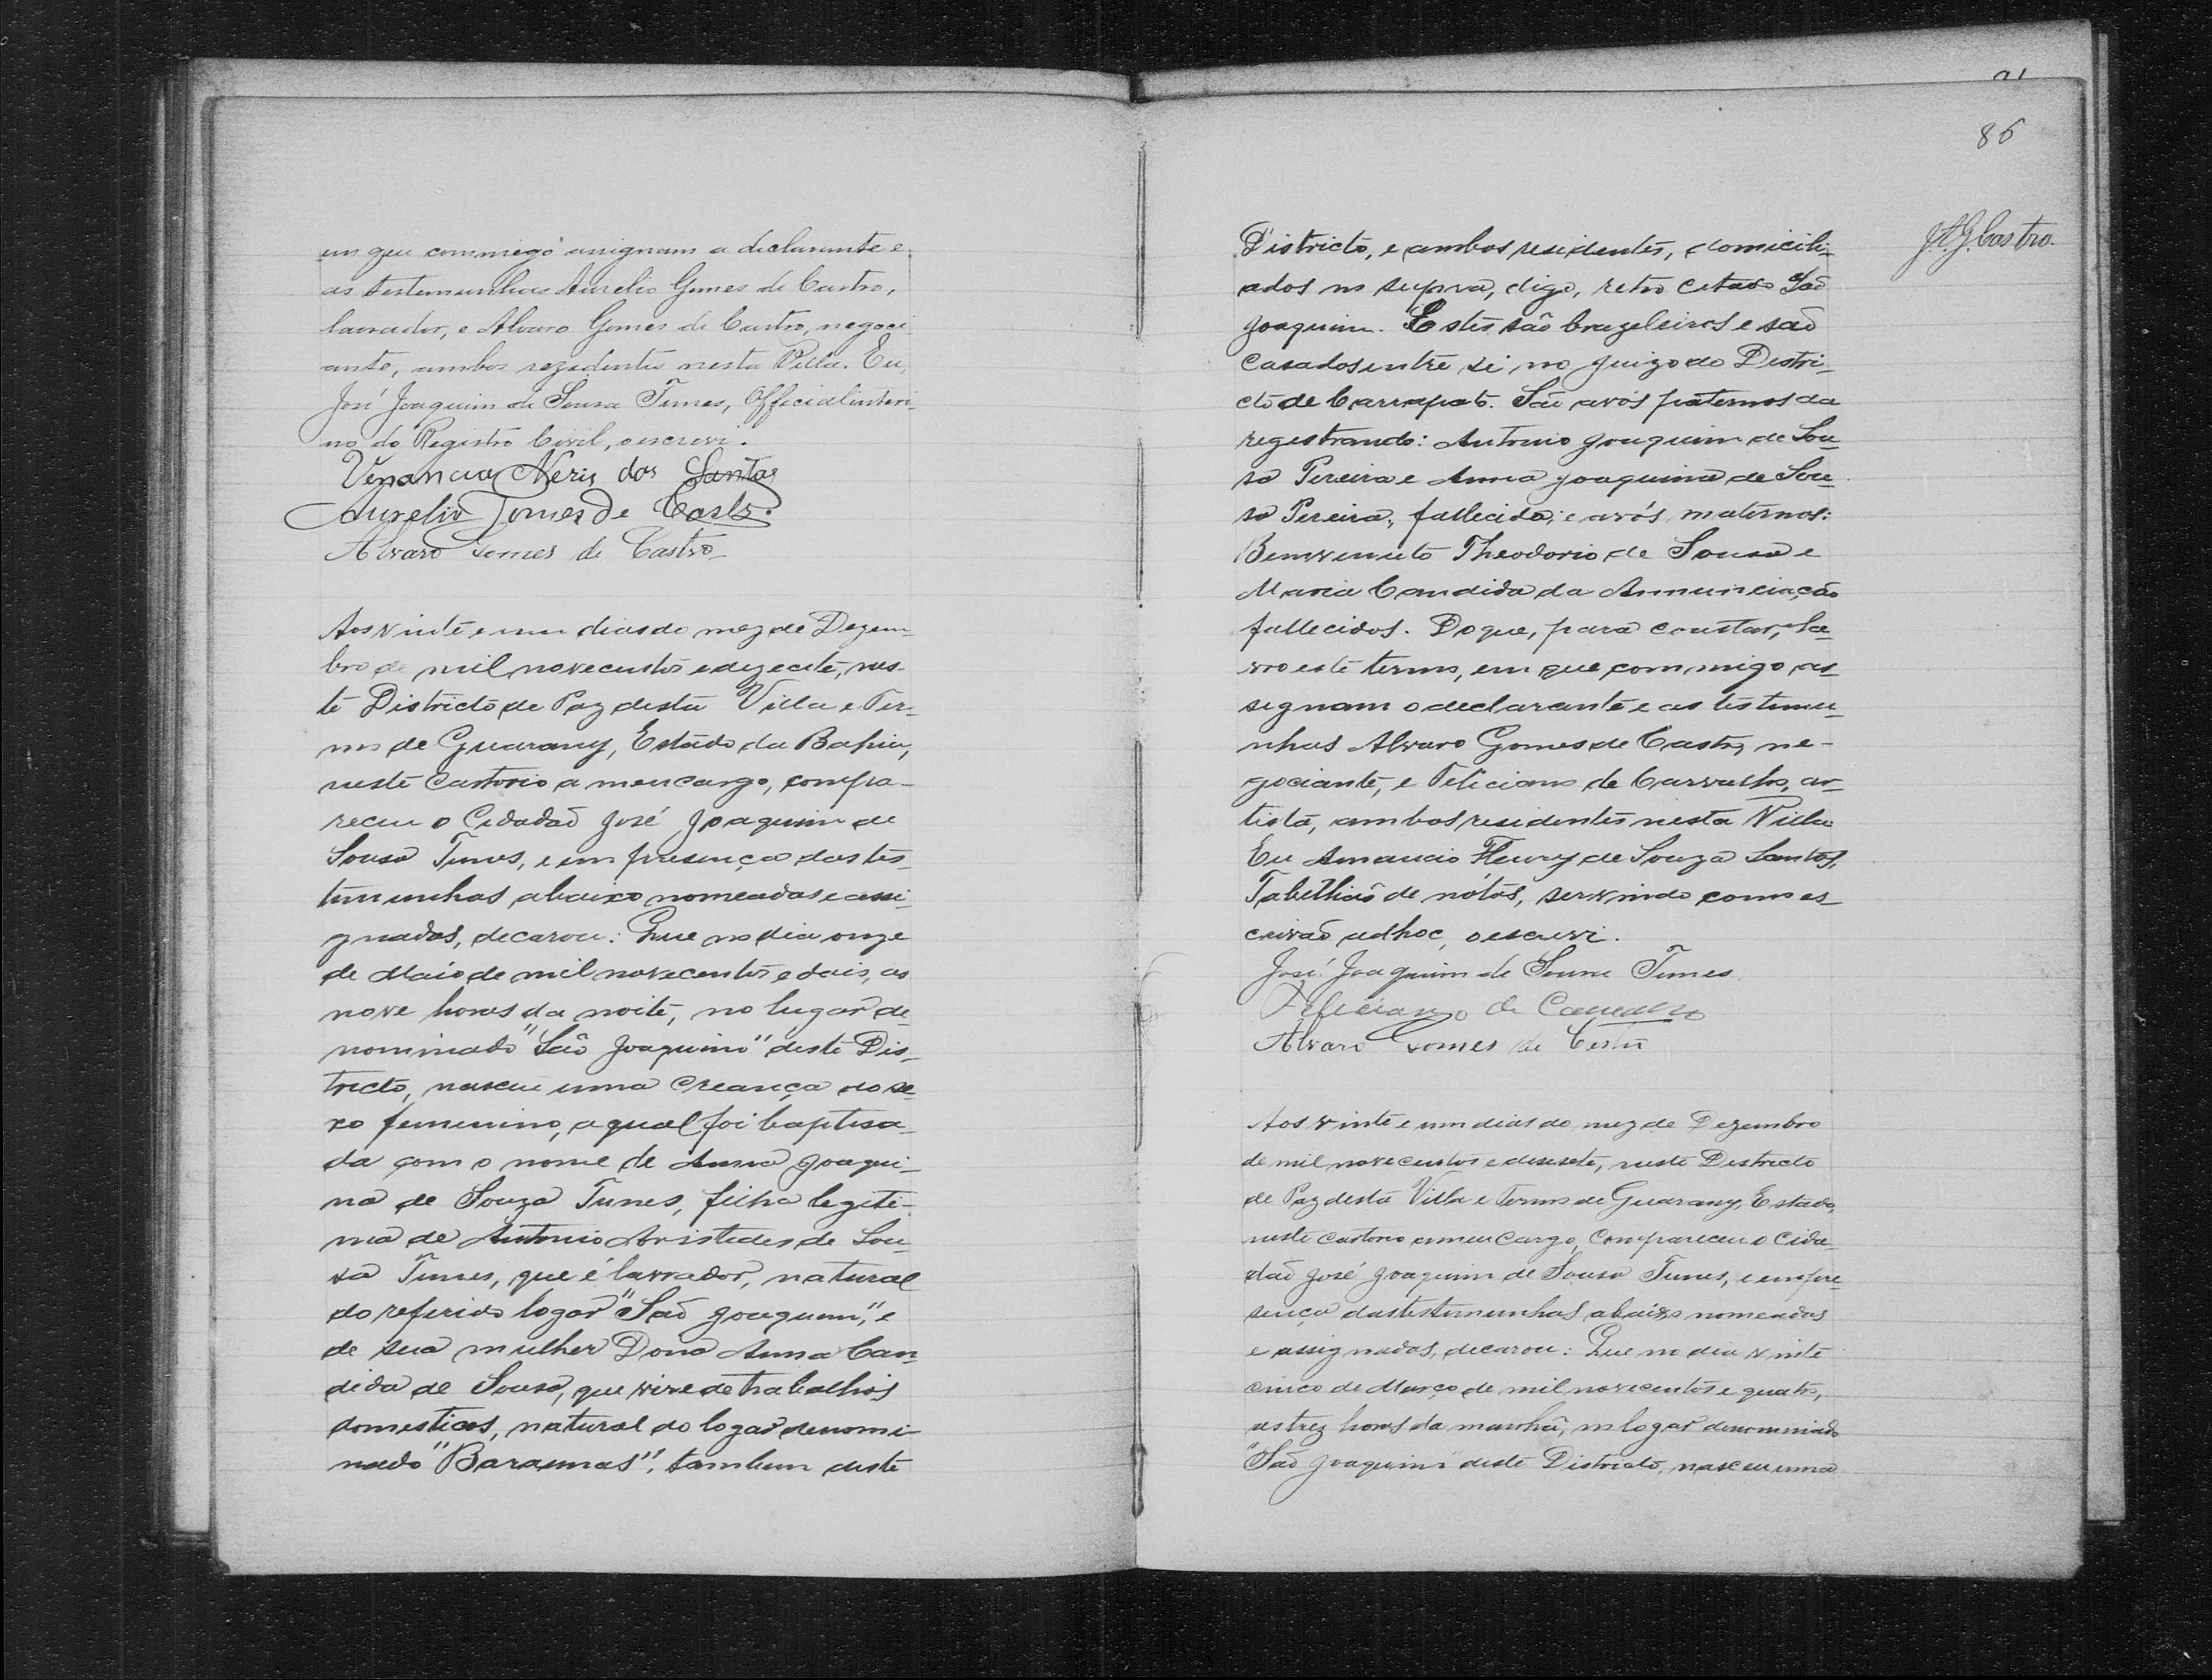 em que commigo assignam a declarante e
as testemunhas Aurelio Gomes de Castro,
lavrador, e Alvaro Gomes de Castro, negoci
ante, ambos rezidentes nesta Villa. Eu,
José Joaquim de Sousa Tunes, Official interi-
no do Registro Civil, o escrevi.
Venancia Neris dos Santos
Aurelio Gomes de Castro
Alvaro Gomes de Castro
Aos vinte e um dias do mez de Dezem-
bro de mil novecentos e dezecete, nes-
te Districto de Paz desta Villa e Ter-
mo de Guarany, Estado da Bahia,
neste Cartorio a meu cargo, compa-
receu o Cidadão José Joaquim de
Sousa Tunes, e em presença das tes-
temunhas abaixo nomeadas e assi-
gnadas, decarou: Que no dia onze
de Maio de mil novecentos e dois, as
nove horas da noite, no lugar de-
nominado "São Joaquim" deste Dis-
tricto, nasceu uma creança do se-
xo femenino, a qual foi baptisa-
da com o nome de Anna Joaqui-
na de Souza Tunes, filha legiti-
ma de Antonio Aristides de Sou-
sa Tunes, que é lavrador, natural
do referido logar "São Joaquim", e
de sua mulher Dona Anna Can-
dida de Sousa, que vive de trabalhos
domesticos, natural do logar denomi-
nado "Baraunas", tambem deste
86
J.A.G. Castro.
Districto, e ambos residentes, domicili-
ados no supra, digo, retro citado São
Joaquim. Estes são brazeleiros e são
casados entre si no Juizo do Distri-
cto de Carrapato. São avós paternos da
registrando: Antonio Joaquim de Sou-
sa Pereira e Anna Joaquina de Sou-
sa Pereira, fallecida; e avós maternos:
Bemvenuto Theodorio de Sousa e
Maria Candida da Annunciação
fallecidos. Do que, para constar, la-
vro este termo, em que commigo as-
segnam o declarante e as testemu-
nhas Alvaro Gomes de Castro, ne-
gociante, e Feliciano de Carvalho, ar-
tista, ambos residentes nesta Villa
Eu Amancio Fleury de Souza Santos,
Tabellião de nótas, servindo como es-
crivão adhoc, o escrevi.
José Joaquim de Sousa Tunes
Feliciano de Carvalho
Alvaro Gomes de Castro
Aos vinte e um dias do mez de Dezembro
de mil novecentos e desesete, neste Destricto
de Paz desta Villa e Termo de Guarany, Estado,
neste Cartorio a meu cargo, compareceu o Cida-
dão José Joaquim de Sousa Tunes, e em pre-
sença das testemunhas abaixo nomeadas
e assignadas, decarou: Que no dia vinte
cinco de Março de mil novecentos e quatro,
as trez horas da manhã, no logar denominado
"São Joaquim" deste Districto, nasceu uma